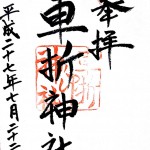 奉拝
車折神社
平成二十七年七月二十二